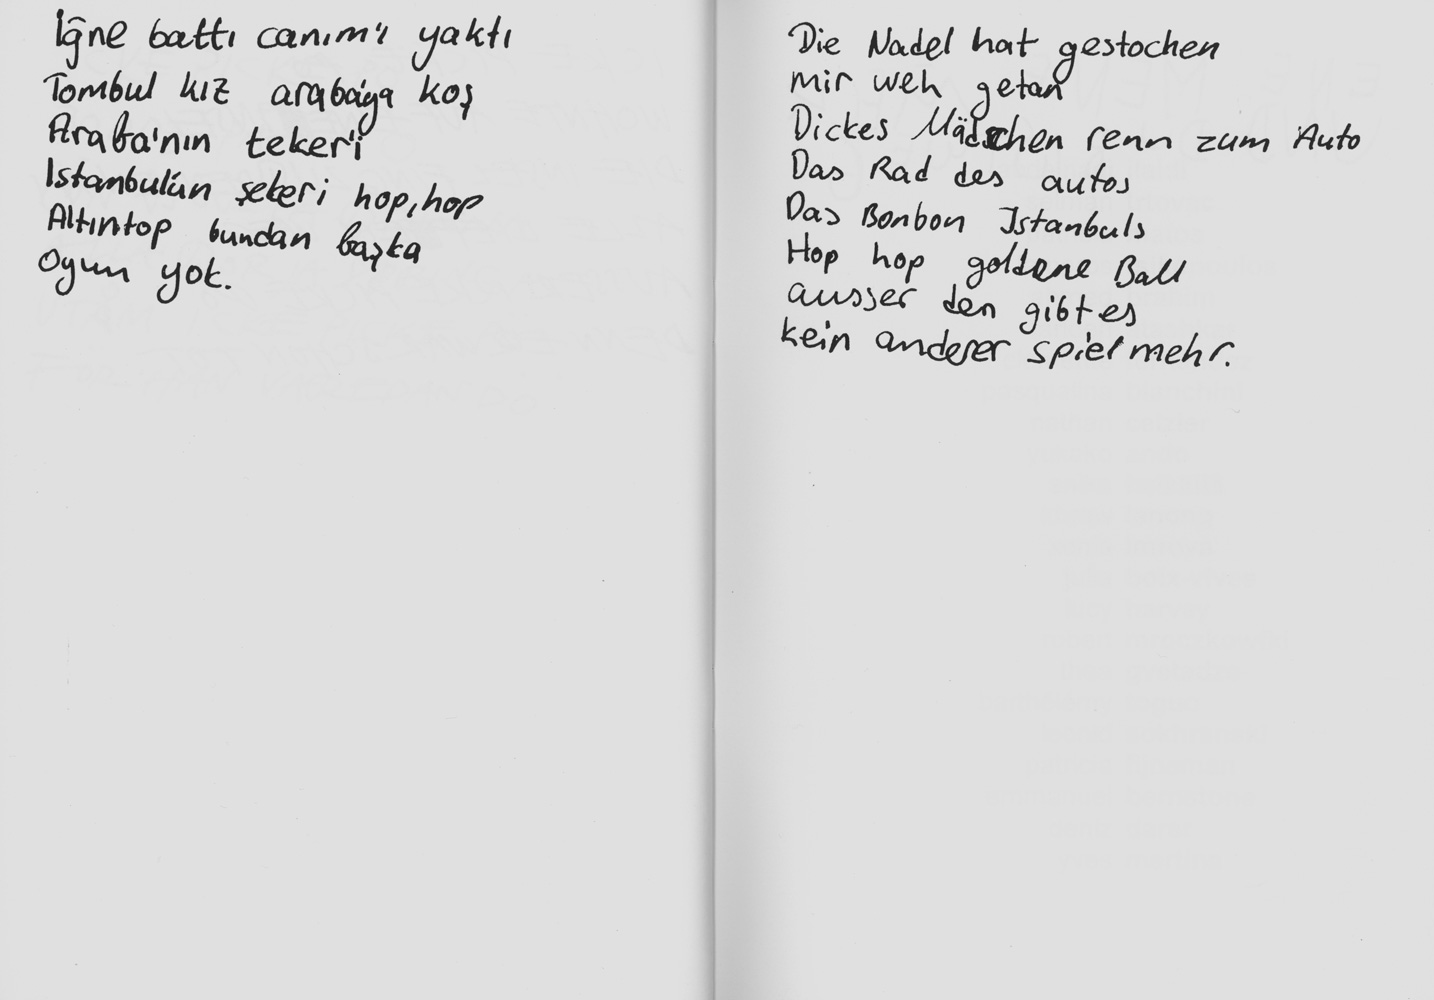 Iğne battı canım'ı yaktı
Tombul kız araba'ya koş
Araba'nın tekeri
Istanbul'un şekeri hop, hop
Altıntop bundan başka
Oyun yok.
Die Nadel hat gestochen
mir weh getan
Dickes Mädchen renn zum Auto
Das Rad des autos
Das Bonbon Istanbuls
Hop hop goldene Ball
ausser den gibt es
kein anderer spiel mehr.